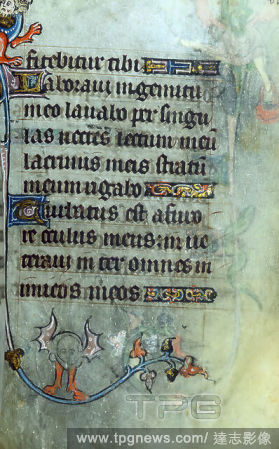 fitebitur tibi
Laboraui in gemitu
meo lauabo per singu
las noctes lectum meū
lacrimis meis stratū
meum rigabo
Turbatus est a furo
re oculus meus: in ue
teraui inter omnes in
imicos meos
TPG
www.tpgnews.com/ 達志影像